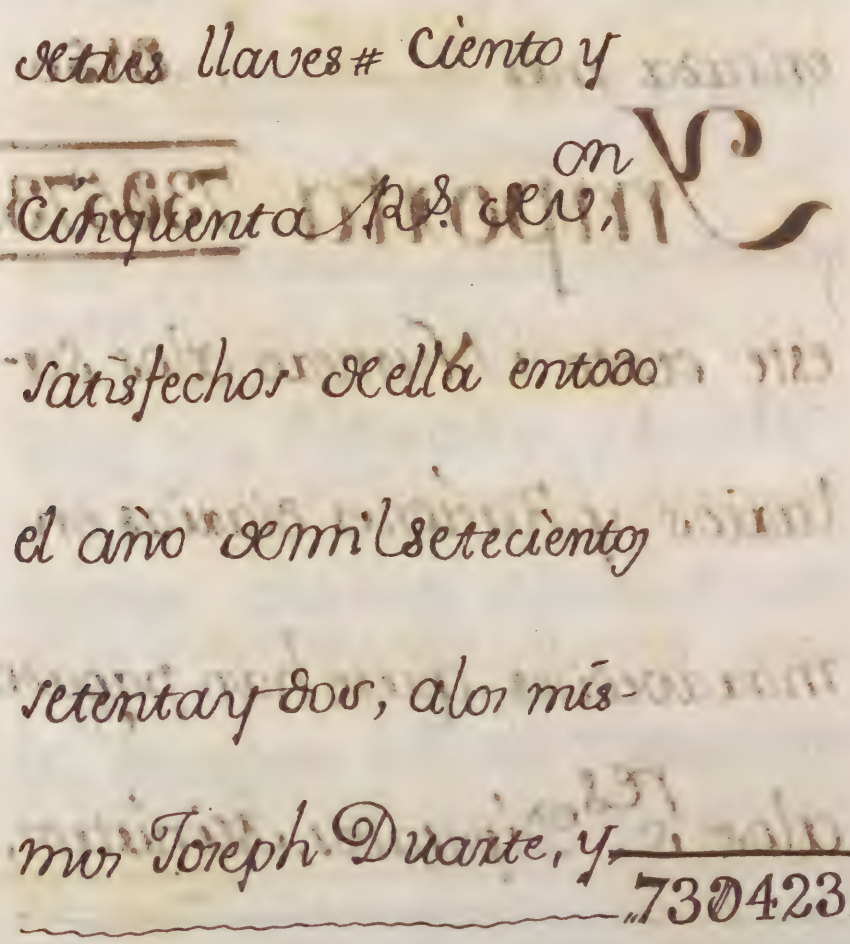 detres llaves # Ciento y
cinquenta Rs. dev,on
satisfechos deella entodo
el año demil setecientos
setenta y dos, alos mis-
mos Joseph Duarte, y
,,730423